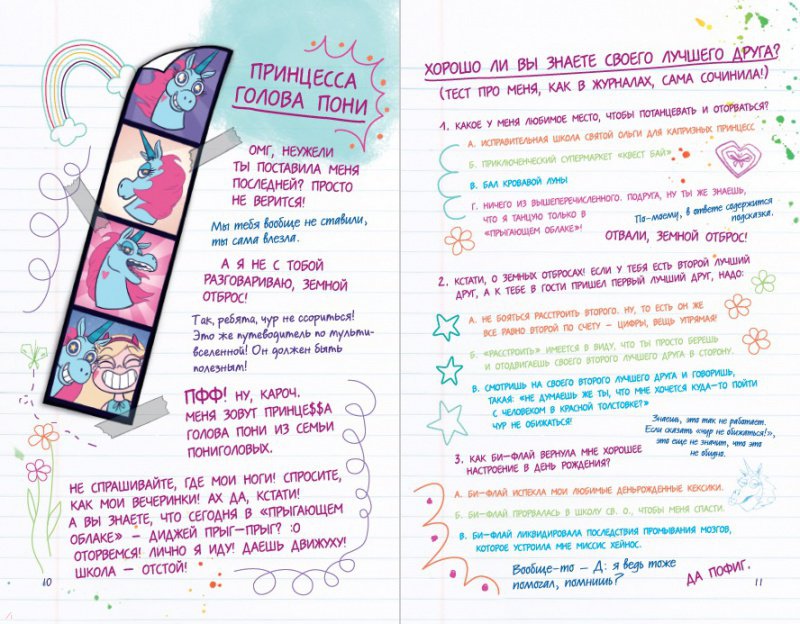 ПРИНЦЕССА
ГОЛОВА ПОНИ
ОМГ, НЕУЖЕЛИ
ТЫ ПОСТАВИЛА МЕНЯ
ПОСЛЕДНЕЙ? ПРОСТО
НЕ ВЕРИТСЯ!
Мы тебя вообще не ставили,
ты сама влезла.
А Я НЕ С ТОБОЙ
РАЗГОВАРИВАЮ, ЗЕМНОЙ
ОТБРОС!
Так, ребята, чур не ссориться!
Это же путеводитель по мульти-
вселенной! Он должен быть
полезным!
ПФФ! НУ, КАРОЧ.
МЕНЯ ЗОВУТ ПРИНЦЕ$$А
ГОЛОВА ПОНИ ИЗ СЕМЬИ
ПОНИГОЛОВЫХ.
НЕ СПРАШИВАЙТЕ, ГДЕ МОИ НОГИ! СПРОСИТЕ,
КАК МОИ ВЕЧЕРИНКИ! АХ ДА, КСТАТИ!
А ВЫ ЗНАЕТЕ, ЧТО СЕГОДНЯ В «ПРЫГАЮЩЕМ
ОБЛАКЕ» – ДИДЖЕЙ ПРЫГ-ПРЫГ? :О
ОТОРВЕМСЯ! ЛИЧНО Я ИДУ! ДАЕШЬ ДВИЖУХУ!
ШКОЛА – ОТСТОЙ!
10
ХОРОШО ЛИ ВЫ ЗНАЕТЕ СВОЕГО ЛУЧШЕГО ДРУГА?
(ТЕСТ ПРО МЕНЯ, КАК В ЖУРНАЛАХ, САМА СОЧИНИЛА!)
1. КАКОЕ У МЕНЯ ЛЮБИМОЕ МЕСТО, ЧТОБЫ ПОТАНЦЕВАТЬ И ОТОРВАТЬСЯ?
А. ИСПРАВИТЕЛЬНАЯ ШКОЛА СВЯТОЙ ОЛЬГИ ДЛЯ КАПРИЗНЫХ ПРИНЦЕСС
Б. ПРИКЛЮЧЕНЧЕСКИЙ СУПЕРМАРКЕТ «КВЕСТ БАЙ»
В. БАЛ КРОВАВОЙ ЛУНЫ
Г. НИЧЕГО ИЗ ВЫШЕПЕРЕЧИСЛЕННОГО. ПОДРУГА, НУ ТЫ ЖЕ ЗНАЕШЬ,
ЧТО Я ТАНЦУЮ ТОЛЬКО В
«ПРЫГАЮЩЕМ ОБЛАКЕ»!
По-моему, в ответе содержится
подсказка.
ОТВАЛИ, ЗЕМНОЙ ОТБРОС!
2. КСТАТИ, О ЗЕМНЫХ ОТБРОСАХ! ЕСЛИ У ТЕБЯ ЕСТЬ ВТОРОЙ ЛУЧШИЙ
ДРУГ, А К ТЕБЕ В ГОСТИ ПРИШЕЛ ПЕРВЫЙ ЛУЧШИЙ ДРУГ, НАДО:
А. НЕ БОЯТЬСЯ РАССТРОИТЬ ВТОРОГО. НУ, ТО ЕСТЬ ОН ЖЕ
ВСЕ РАВНО ВТОРОЙ ПО СЧЕТУ – ЦИФРЫ, ВЕЩЬ УПРЯМАЯ!
Б. «РАССТРОИТЬ» ИМЕЕТСЯ В ВИДУ, ЧТО ТЫ ПРОСТО БЕРЕШЬ
И ОТОДВИГАЕШЬ СВОЕГО ВТОРОГО ЛУЧШЕГО ДРУГА В СТОРОНУ.
В. СМОТРИШЬ НА СВОЕГО ВТОРОГО ЛУЧШЕГО ДРУГА И ГОВОРИШЬ,
ТАКАЯ: «НЕ ДУМАЕШЬ ЖЕ ТЫ, ЧТО МНЕ ХОЧЕТСЯ КУДА-ТО ПОЙТИ
С ЧЕЛОВЕКОМ В КРАСНОЙ ТОЛСТОВКЕ?»
ЧУР НЕ ОБИЖАТЬСЯ!
Знаешь, это так не работает.
Если сказать «чур не обижаться!»,
это еще не значит, что это
не обидно.
3. КАК БИ-ФЛАЙ ВЕРНУЛА МНЕ ХОРОШЕЕ
НАСТРОЕНИЕ В ДЕНЬ РОЖДЕНИЯ?
А. БИ-ФЛАЙ ИСПЕКЛА МОИ ЛЮБИМЫЕ ДЕНЬРОЖДЕННЫЕ КЕКСИКИ.
Б. БИ-ФЛАЙ ПРОРВАЛАСЬ В ШКОЛУ СВ. О., ЧТОБЫ МЕНЯ СПАСТИ.
В. БИ-ФЛАЙ ЛИКВИДИРОВАЛА ПОСЛЕДСТВИЯ ПРОМЫВАНИЯ МОЗГОВ,
КОТОРОЕ УСТРОИЛА МНЕ МИССИС ХЕЙНОС.
Вообще-то – Д: я ведь тоже
помогал, помнишь?
ДА ПОФИГ.
11